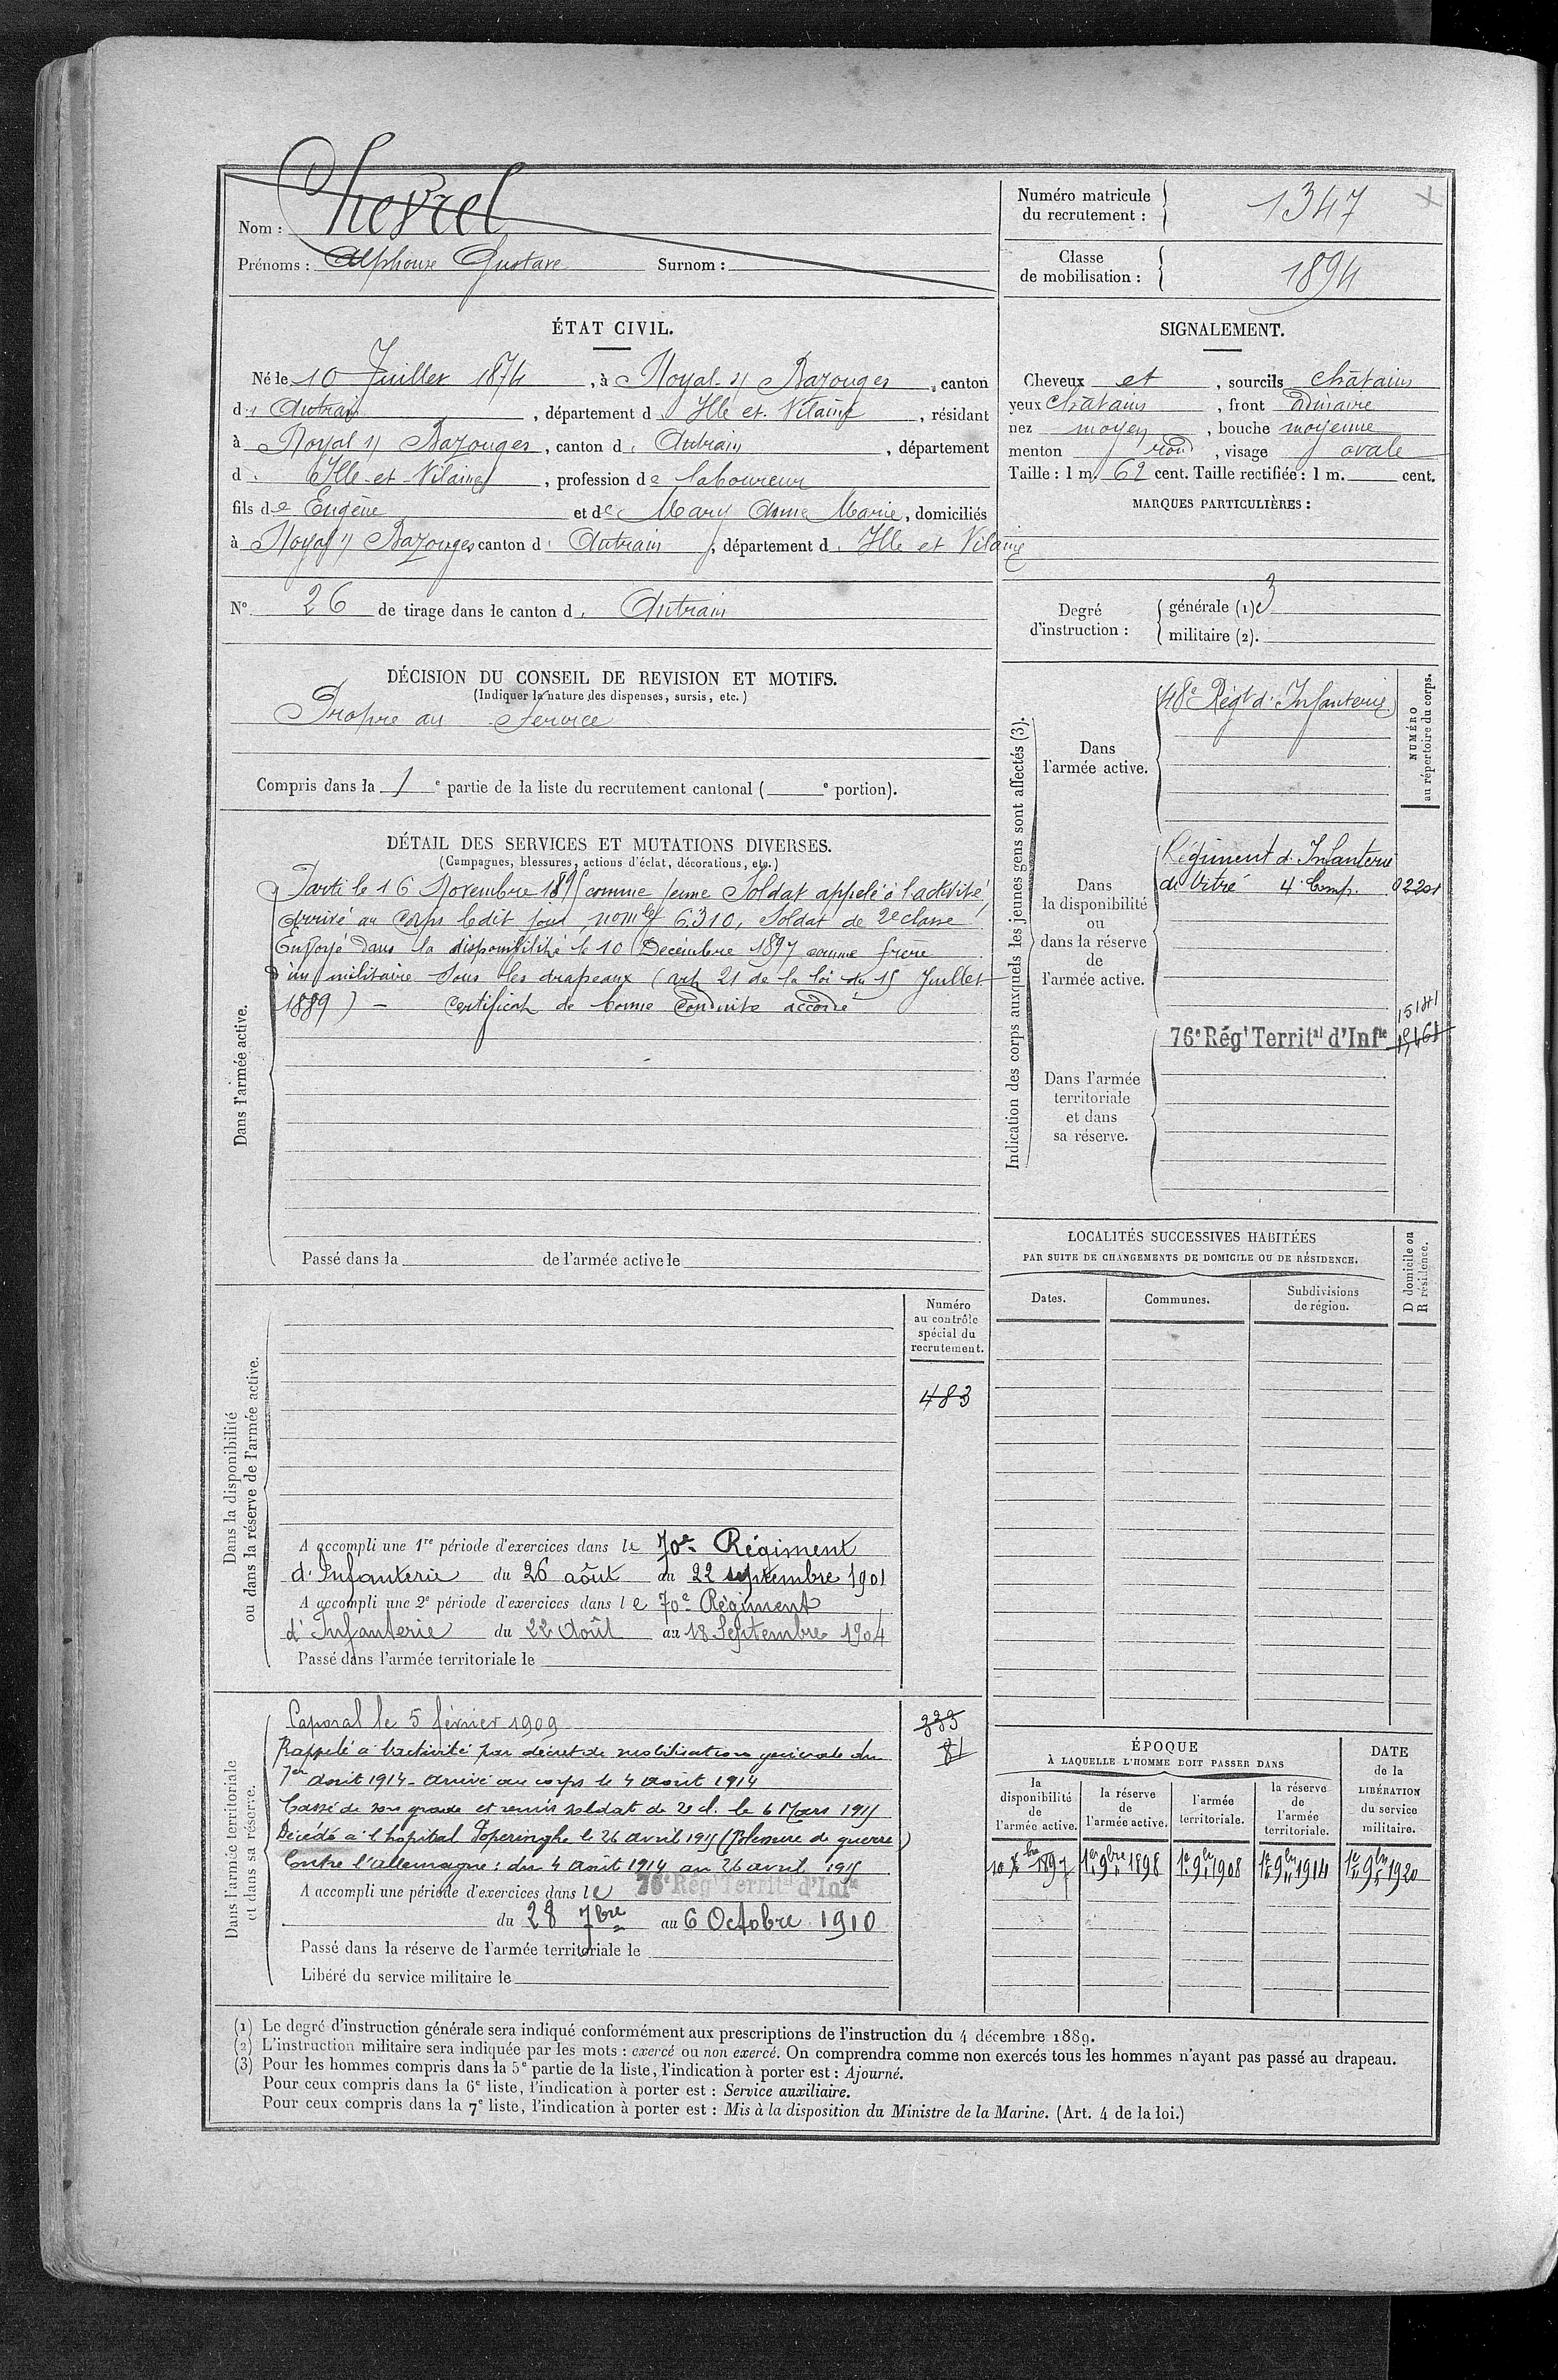 Nom : Chevrel
Prénoms : Alphonse Gustave Surnom :
Numéro matricule du recrutement : 1347
Classe de mobilisation : 1894
ÉTAT CIVIL.
Né le 10 Juillet 1874, à Noyal s/ Bazouges, canton
d' Antrain, département d' Ille et Vilaine, résidant
à Noyal s/ Bazouges, canton d' Antrain, département
d' Ille-et-Vilaine, profession de laboureur
fils de Eugène et de Mary Anne Marie, domiciliés
à Noyal s/ Bazouges canton d' Antrain, département d' Ille et Vilaine
N° 26 de tirage dans le canton d' Antrain
SIGNALEMENT.
Cheveux et, sourcils châtains
yeux châtains, front ordinaire
nez moyen, bouche moyenne
menton rond, visage ovale
Taille : 1 m. 62 cent. Taille rectifiée : 1 m. cent.
MARQUES PARTICULIÈRES :
Degré d'instruction :
générale (1) 3
militaire (2).
DÉCISION DU CONSEIL DE REVISION ET MOTIFS.
(Indiquer la nature des dispenses, sursis, etc.)
Propre au service
Compris dans la 1e partie de la liste du recrutement cantonal ( e portion).
DÉTAIL DES SERVICES ET MUTATIONS DIVERSES.
(Campagnes, blessures, actions d'éclat, décorations, etc.)
Dans l'armée active.
Parti le 16 Novembre 1895 comme jeune Soldat appelé à l'activité,
Arrivé au Corps ledit jour, nom le 6310, Soldat de 2e classe
Envoyé dans la disponibilité le 10 Décembre 1897 comme frère
d'un militaire sous les drapeaux (art. 21 de la loi du 15 Juillet
1889) - Certificat de bonne conduite accordé
Passé dans la de l'armée active le
Indication des corps auxquels les jeunes gens sont affectés (3).
NUMÉRO au répertoire du corps.
Dans l'armée active.
48e Régt d'Infanterie
Dans la disponibilité ou dans la réserve de l'armée active.
Régiment d'Infanterie
de Vitré 4e Comp. 02201
Dans l'armée territoriale et dans sa réserve.
15181
76e Régt Territal d'Infie
LOCALITÉS SUCCESSIVES HABITÉES
PAR SUITE DE CHANGEMENTS DE DOMICILE OU DE RÉSIDENCE.
Dates. Communes. Subdivisions de région. D domicile ou R résidence.
Dans la disponibilité ou dans la réserve de l'armée active.
Numéro au contrôle spécial du recrutement.
483
A accompli une 1re période d'exercices dans le 70e Régiment
d'Infanterie du 26 août au 22 septembre 1901
A accompli une 2e période d'exercices dans le 70e Régiment
d'Infanterie du 22 Août au 18 Septembre 1904
Passé dans l'armée territoriale le
Dans l'armée territoriale et dans sa réserve.
333
81
Caporal le 5 février 1909
Rappelé à l'activité par décret de mobilisation générale du
1er Août 1914 - Arrivé au corps le 4 août 1914
Cassé de son grade et remis soldat de 2e cl. le 6 Mars 1915
Décédé à l'hôpital Poperinghe le 26 avril 1915 (Blessure de guerre)
Contre l'Allemagne : du 4 Août 1914 au 26 avril 1915
A accompli une période d'exercices dans le 76e Régt Territal d'Infie
du 28 7bre au 6 Octobre 1910
Passé dans la réserve de l'armée territoriale le
Libéré du service militaire le
ÉPOQUE
À LAQUELLE L'HOMME DOIT PASSER DANS
la disponibilité de l'armée active.
la réserve de l'armée active.
l'armée territoriale.
la réserve de l'armée territoriale.
DATE de la LIBÉRATION du service militaire.
10 Xbre 1897 1er 9bre 1898 1er 9bre 1908 1er 9bre 1914 1er 9bre 1920
(1) Le degré d'instruction générale sera indiqué conformément aux prescriptions de l'instruction du 4 décembre 1889.
(2) L'instruction militaire sera indiquée par les mots : exercé ou non exercé. On comprendra comme non exercés tous les hommes n'ayant pas passé au drapeau.
(3) Pour les hommes compris dans la 5e partie de la liste, l'indication à porter est : Ajourné.
Pour ceux compris dans la 6e liste, l'indication à porter est : Service auxiliaire.
Pour ceux compris dans la 7e liste, l'indication à porter est : Mis à la disposition du Ministre de la Marine. (Art. 4 de la loi.)